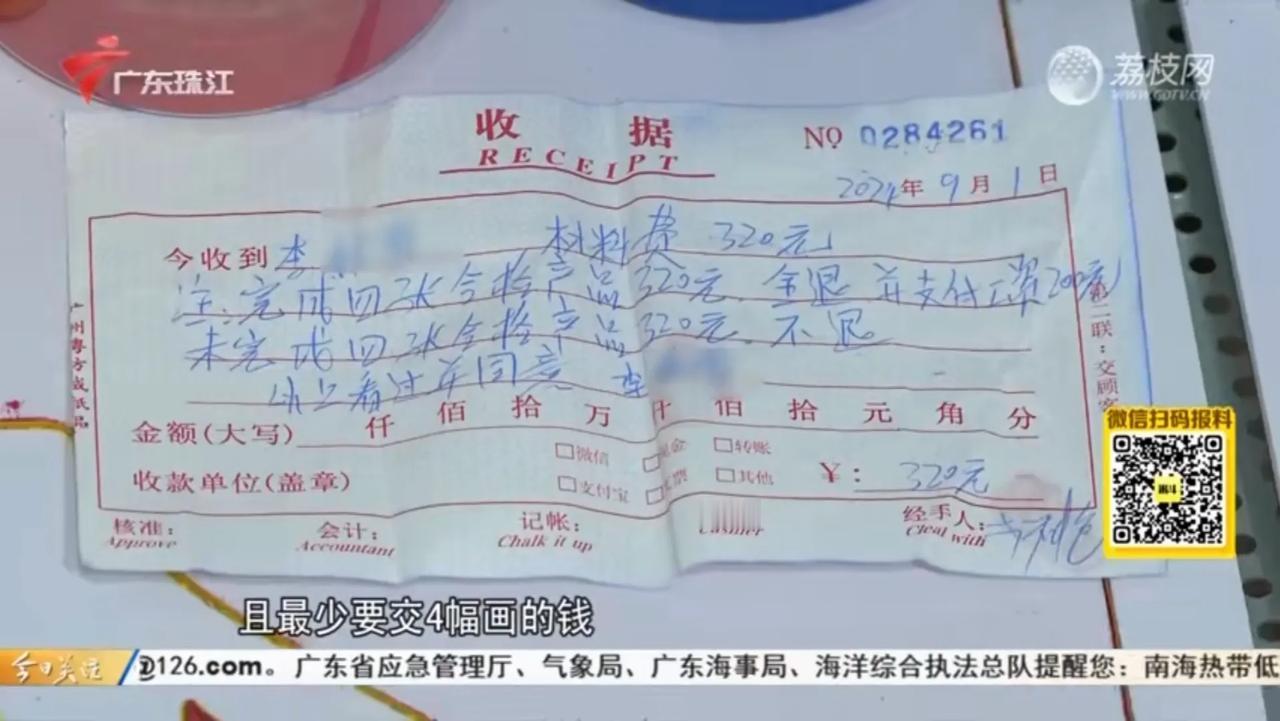 广东珠江
荔枝网
WWW.GDTV.CN
收据
RECEIPT
NO 0284261
2024年9月1日
今收到 李 材料费 320元
注:完成四张合格产品320元.全退并支付工资200元
未完成四张合格产品320元.不退
以上看过并同意 李
第二联:交顾客
金额(大写) 仟佰拾万仟佰拾元角分
收款单位(盖章) □微信 □现金 □转账
□支付宝 □支票 □其他 ¥: 320元
核准: 会计: 记帐: 经手人:
Approve Accountant Chalk it up Cashier Cleal with
微信扫码报料
且最少要交4幅画的钱
今日关注
@126.com。广东省应急管理厅、气象局、广东海事局、海洋综合执法总队提醒您:南海热带低